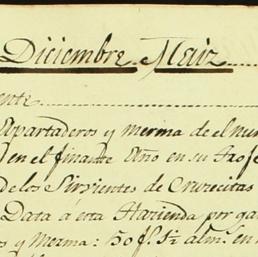 Diciembre Maiz
ente
Apartaderos y merma de el
en el finante Año en su
de los Sirvientes de Cruzecitas
Data á esta Hazienda por
y Merma: 50 f.s 1½ alm.s en